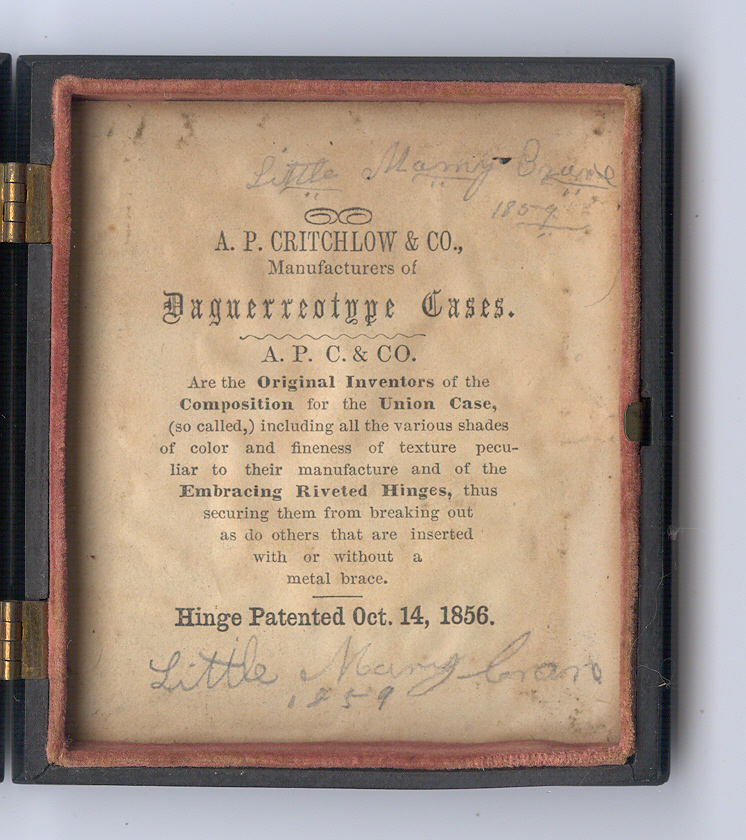 Little Mamy Crane
1859
A. P. CRITCHLOW & CO.,
Manufacturers of
Daguerreotype Cases.
A. P. C. & CO.
Are the Original Inventors of the
Composition for the Union Case,
(so called,) including all the various shades
of color and fineness of texture pecu-
liar to their manufacture and of the
Embracing Riveted Hinges, thus
securing them from breaking out
as do others that are inserted
with or without a
metal brace.
Hinge Patented Oct. 14, 1856.
Little Mamy Cran
1859